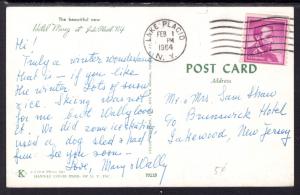 The beautiful new
Hotel Marcy at Lake Placid N.Y.
LAKE PLACID
FEB 1
PM
1964
N.Y.
POST CARD
Address
Hi!
Truly a winter wonderland
that is - if you like
the winter. Lots of snow
& ice. Skiing was not
for me but Wally loves
it. We did some iceskating
used a dog sled & had
fun. See you soon -
Love, Mary & Wally
Mr. & Mrs. Sam Shaw
c/o Brunswick Hotel
Lakewood, New Jersey
K